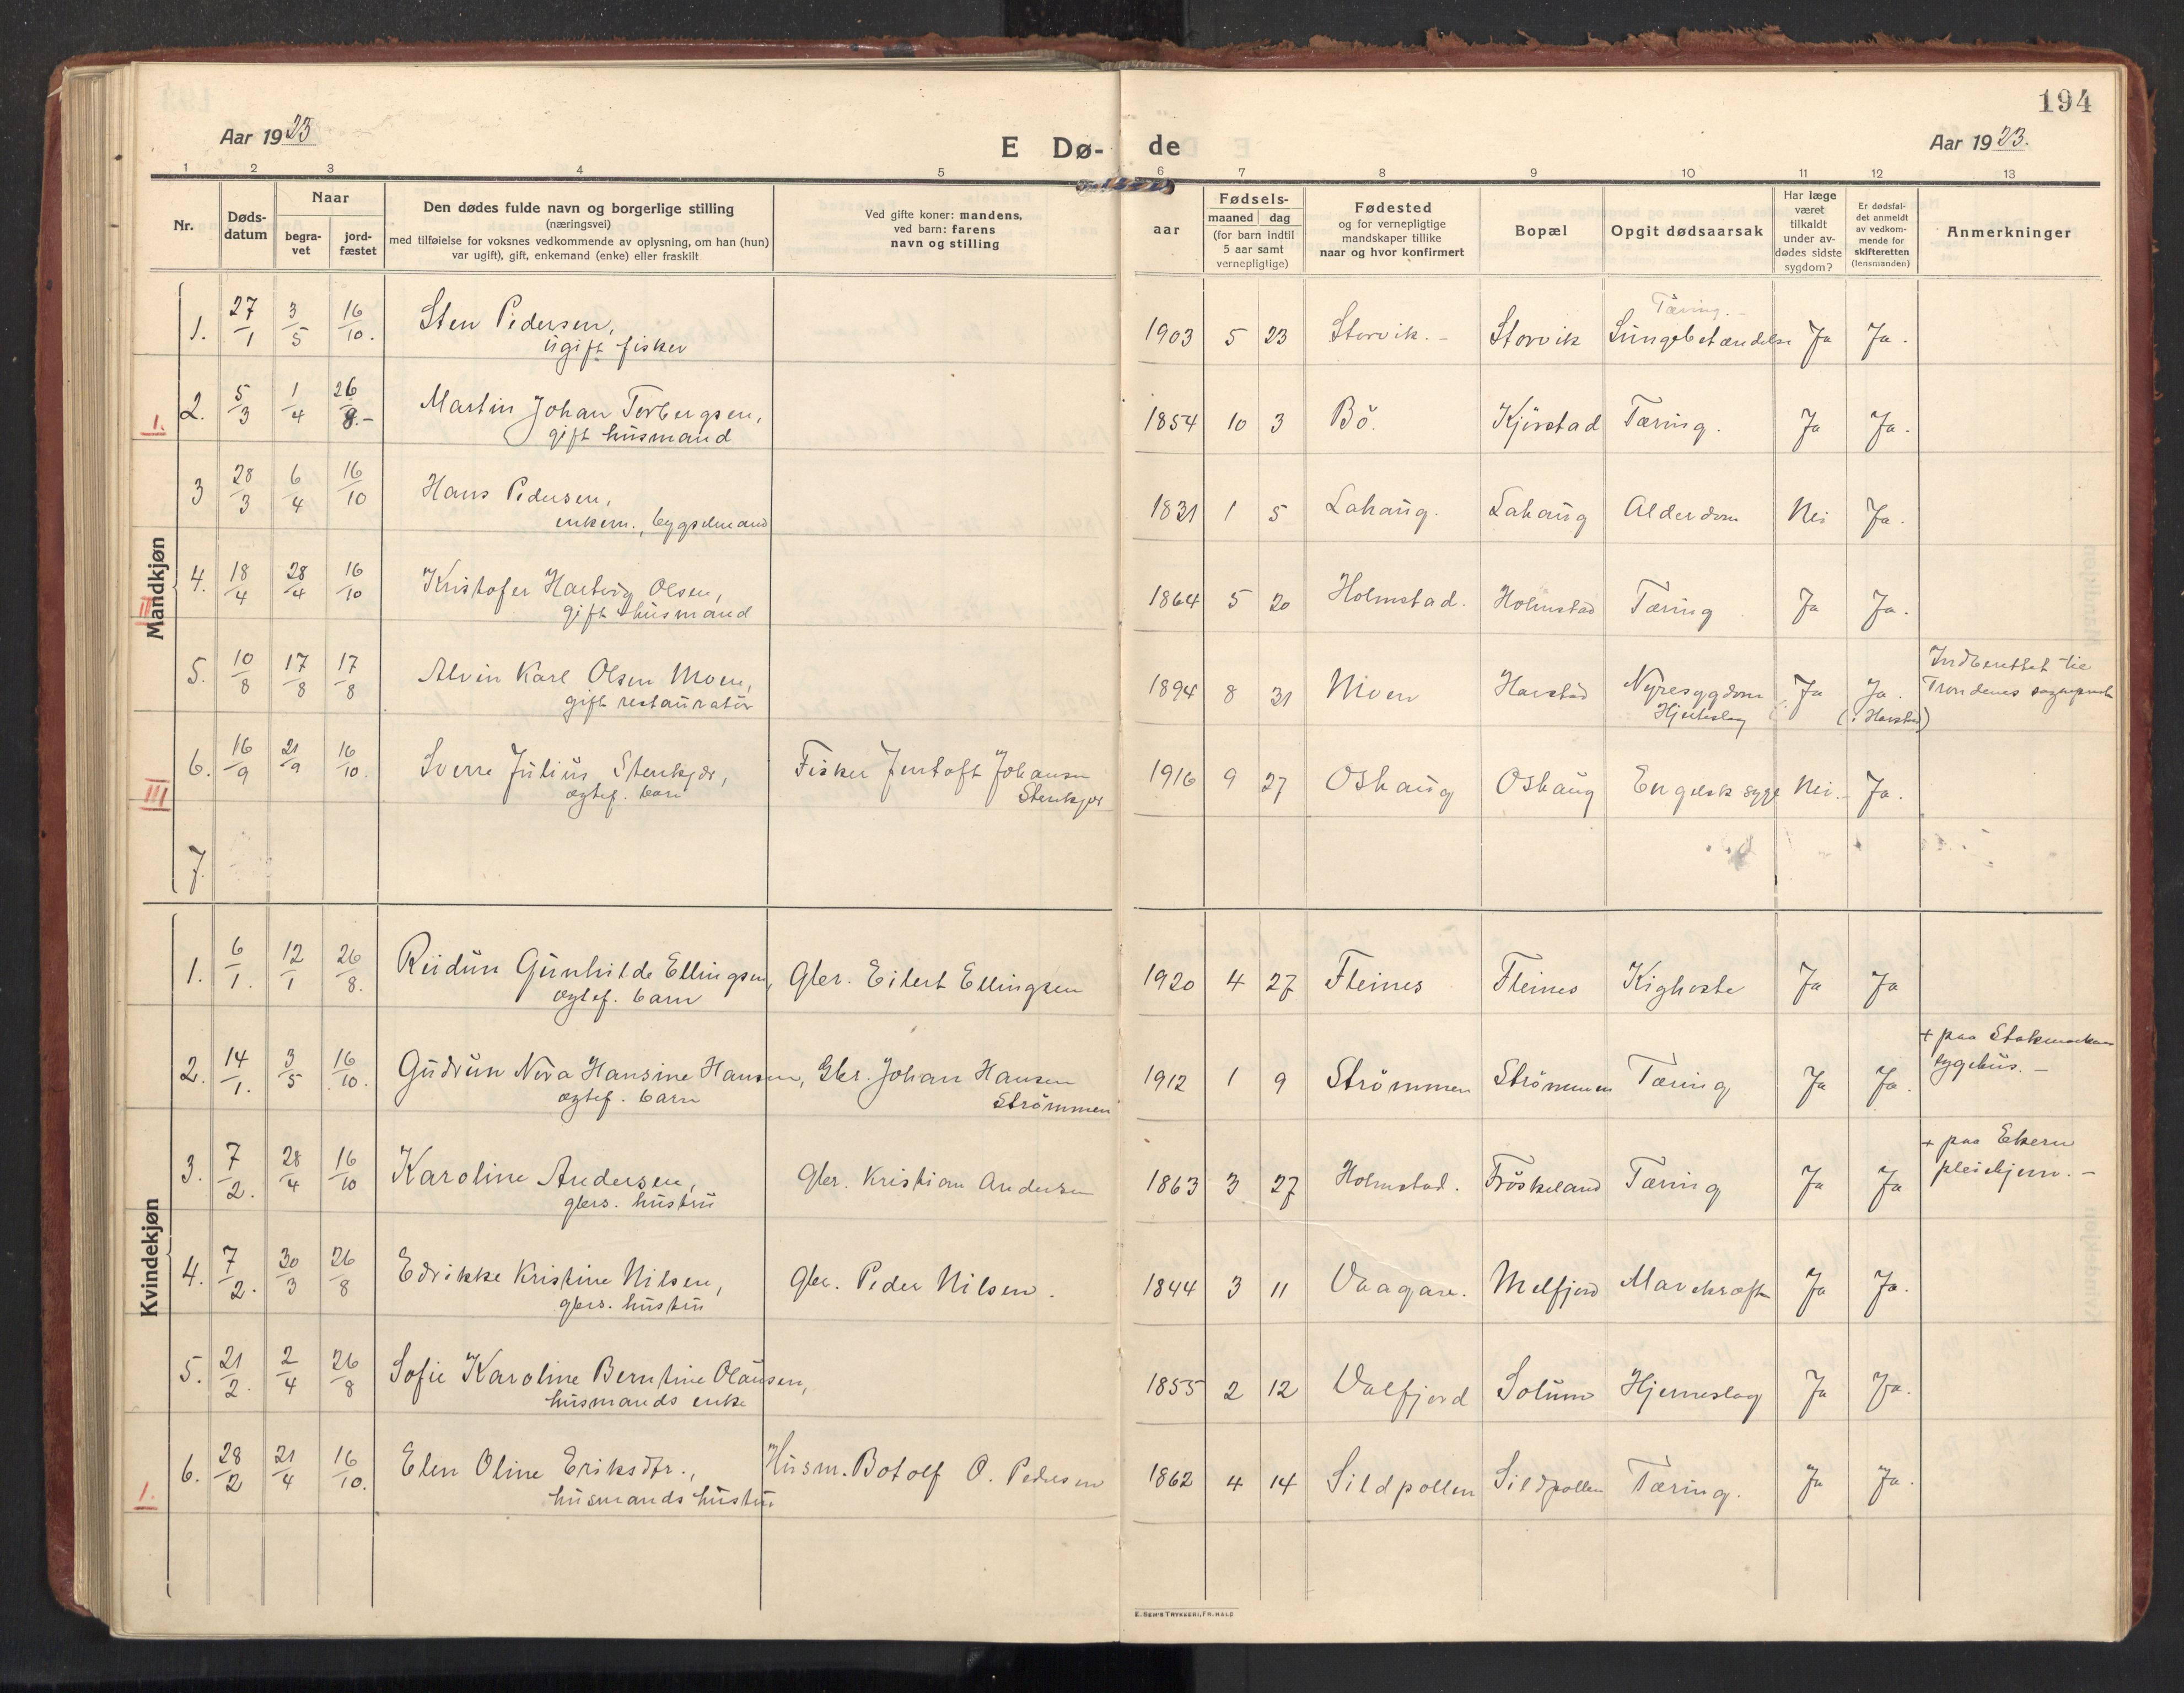 194
Aar 1923
E Dø-
de
Aar 1923.
1 2 3 4 5 6 7 8 9 10 11 12 13
Nr.
Døds-
datum
Naar
begra-
vet
jord-
fæstet
Den dødes fulde navn og borgerlige stilling
(næringsvei)
med tilføielse for voksnes vedkommende av oplysning, om han (hun)
var ugift), gift, enkemand (enke) eller fraskilt
Ved gifte koner: mandens,
ved barn: farens
navn og stilling
Fødsels-
aar
maaned dag
(for barn indtil
5 aar samt
vernepligtige)
Fødested
og for vernepligtige
mandskaper tillike
naar og hvor konfirmert
Bopæl
Opgit dødsaarsak
Har læge
været
tilkaldt
under av-
dødes sidste
sygdom?
Er dødsfal-
det anmeldt
av vedkom-
mende for
skifteretten
(lensmanden)
Anmerkninger
Mandkjøn
Tæring.
1. 27/1 3/5 16/10. Sten Pedersen, 1903 5 23 Storvik. Storvik Lungebetændelse Ja Ja.
ugift fisker
I. 2. 5/3 1/4 26/8.- Martin Johan Torbergsen, 1854 10 3 Bö. Kjörstad Tæring. Ja Ja.
gift husmand
3 28/3 6/4 16/10 Hans Pedersen, 1831 1 5 Lahaug. Lahaug Alderdom Nei Ja.
enkem., bygselmand
II 4. 18/4 28/4 16/10 Kristofer Hartvig Olsen, 1864 5 20 Holmstad. Holmstad Tæring Ja Ja.
gift husmand
5. 10/8 17/8 17/8 Alvin Karl Olsen Moen, 1894 8 31 Moen Harstad Nyresygdom Ja Ja. Indberettet til
gift restauratör Hjerteslag (i Harstad) Trondenes sogneprest
III 6. 16/9 21/9 16/10. Sverre Julius Stenkjær, Fisker Jentoft Johansen 1916 9 27 Oshaug Oshaug Engelsk syge Nei.- Ja.
ægtef. barn Stenkjær
7.
Kvindekjøn
1. 6/1. 12/1 26/8. Reidun Gunhilde Ellingsen, Gbr. Eilert Ellingsen 1920 4 27 Fleines Fleines Kighoste Ja Ja
ægtef. barn
2. 14/1. 3/5 16/10. Gudrun Nora Hansine Hansen, Gbr. Johan Hansen 1912 1 9 Strömmen Strömmen Tæring Ja Ja. + paa Stokmarknes
ægtef. barn Strömmen sygehus.-
3. 7/2. 28/4 16/10 Karoline Andersen, Gbr. Kristian Andersen 1863 3 27 Holmstad. Fröskeland Tæring Ja Ja + paa Ekern
gbrs. hustru pleiehjem.-
4. 7/2. 30/3 26/8 Edrikke Kristine Nilsen, Gbr. Peder Nilsen. 1844 3 11 Vaagan. Melfjord Mavekræft Ja Ja.
gbrs. hustru
5. 21/2. 2/4 26/8 Sofie Karoline Berntine Olausen, 1855 2 12 Valfjord Solum Hjerneslag Ja Ja.
husmands enke
I. 6. 28/2 21/4 16/10. Elen Oline Eriksdtr., Husm. Botolf O. Pedersen 1862 4 14 Sildpollen Sildpollen Tæring. Ja Ja.
husmands hustru
E. SEM'S TRYKKERI, FR. HALD